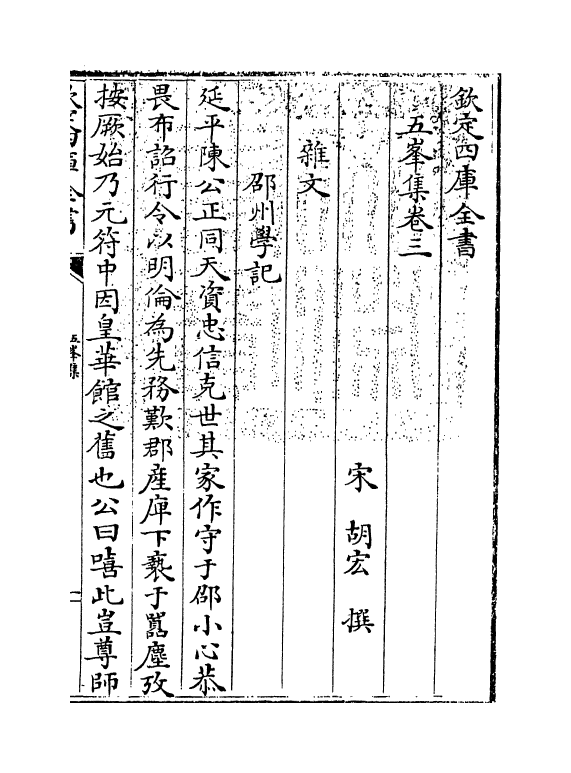 欽定四庫全書
五峯集卷三
宋 胡宏 撰
雜文
邵州學記
延平陳公正同天資忠信克世其家作守于邵小心恭
畏布詔行令以明倫為先務歎郡産庳下褻于嚻塵攷
按厥始乃元符中因皇華館之舊也公曰嘻此豈尊師
五峯集